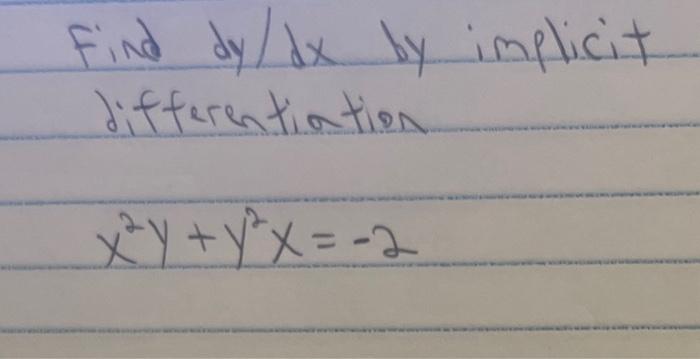 Find dy/dx by implicit
differentiation
x²y + y²x = -2